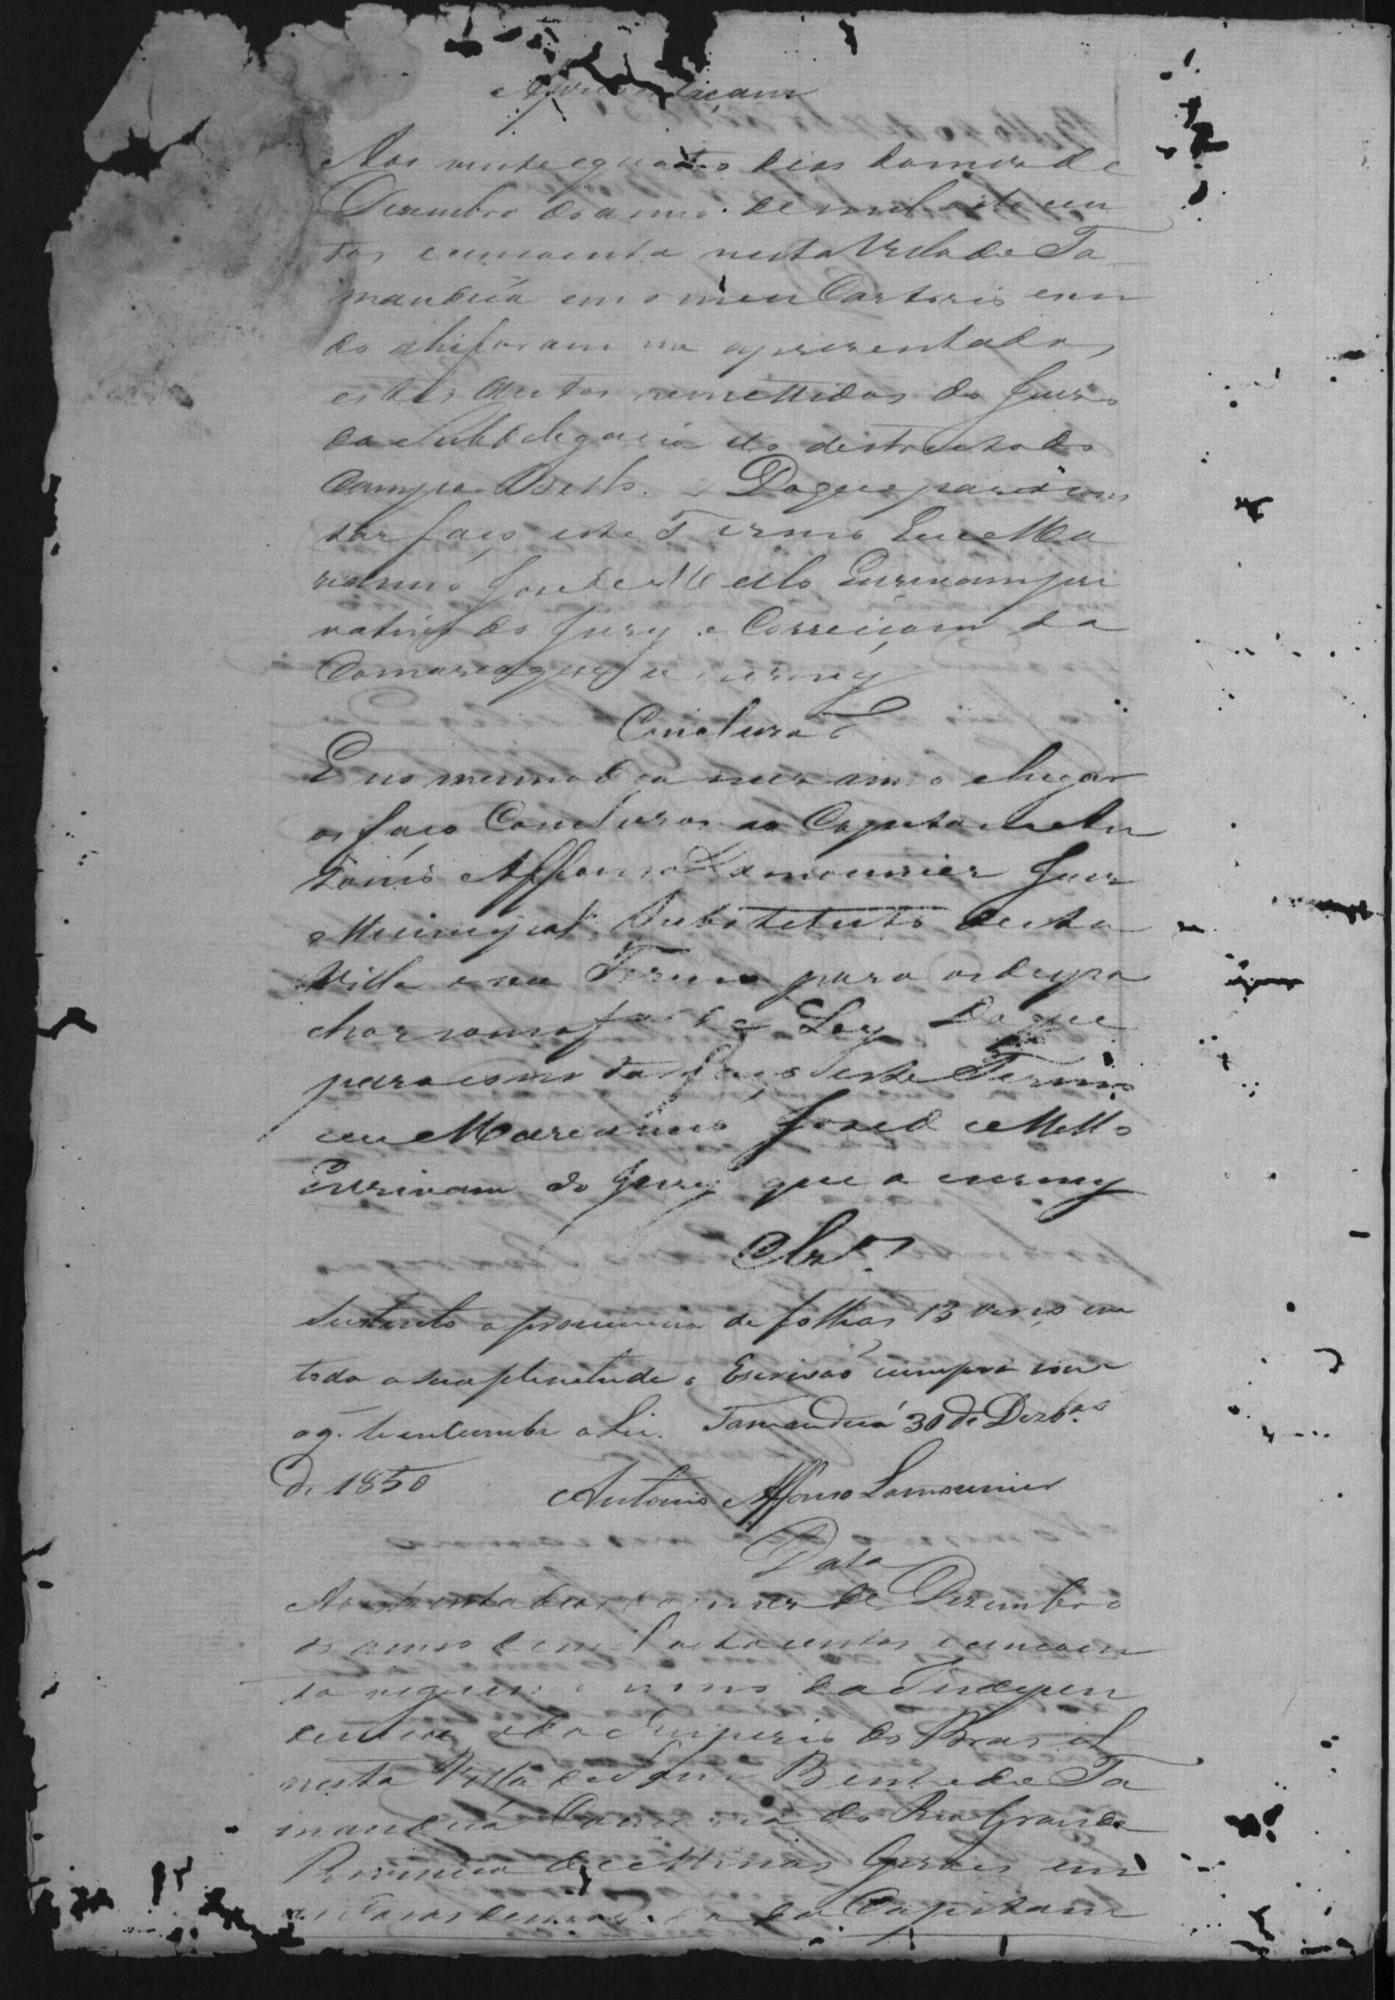 Aos vinte e quatro dias do mes de
Dezembro do anno de mil oito cen
tos cincoenta nesta Villa de Ta
manduá em o meu Cartorio sen
do ahi foram me apresentados
estes autos remettidos do Juizo
da Subdelegacia do destricto do
Campo Bello. Do que para cons
tar faço este Termo Eu Ma
rianno Jose de Mello Escrivam pri
vativo do Jury e Correiçam da
Comarca que o escrevy
Concluzaõ
E no mesmo dia mes anno e lugar
os faço Concluzos ao Capitam An
tonio Affonso Lamounier Juiz
Municipal Substituto desta
Villa e seu Termo para os despa
char na forma da Ley Do que
para constar faço este Termo
eu Marianno Jose de Mello
Escrivam do Jury que o escrevy
Clzos
Sustento a pronuncia de folhas 13 verso em
toda a sua plenitude o Escrivaõ cumpra com
o q. lhe incumbe a Lei. Tamanduá 30 de Dezbro
de 1850
Antonio Affonso Lamounier
Data
Aos trinta dias do mes de Dezembro
do anno de mil oito centos e cincoen
ta da Indepen
dencia e do Imperio do Brasil
nesta Villa de Sam Bento de Ta
manduá Comarca do Rio Grande
Provincia de Minas Geraes em
as Casas de morada do Capitam